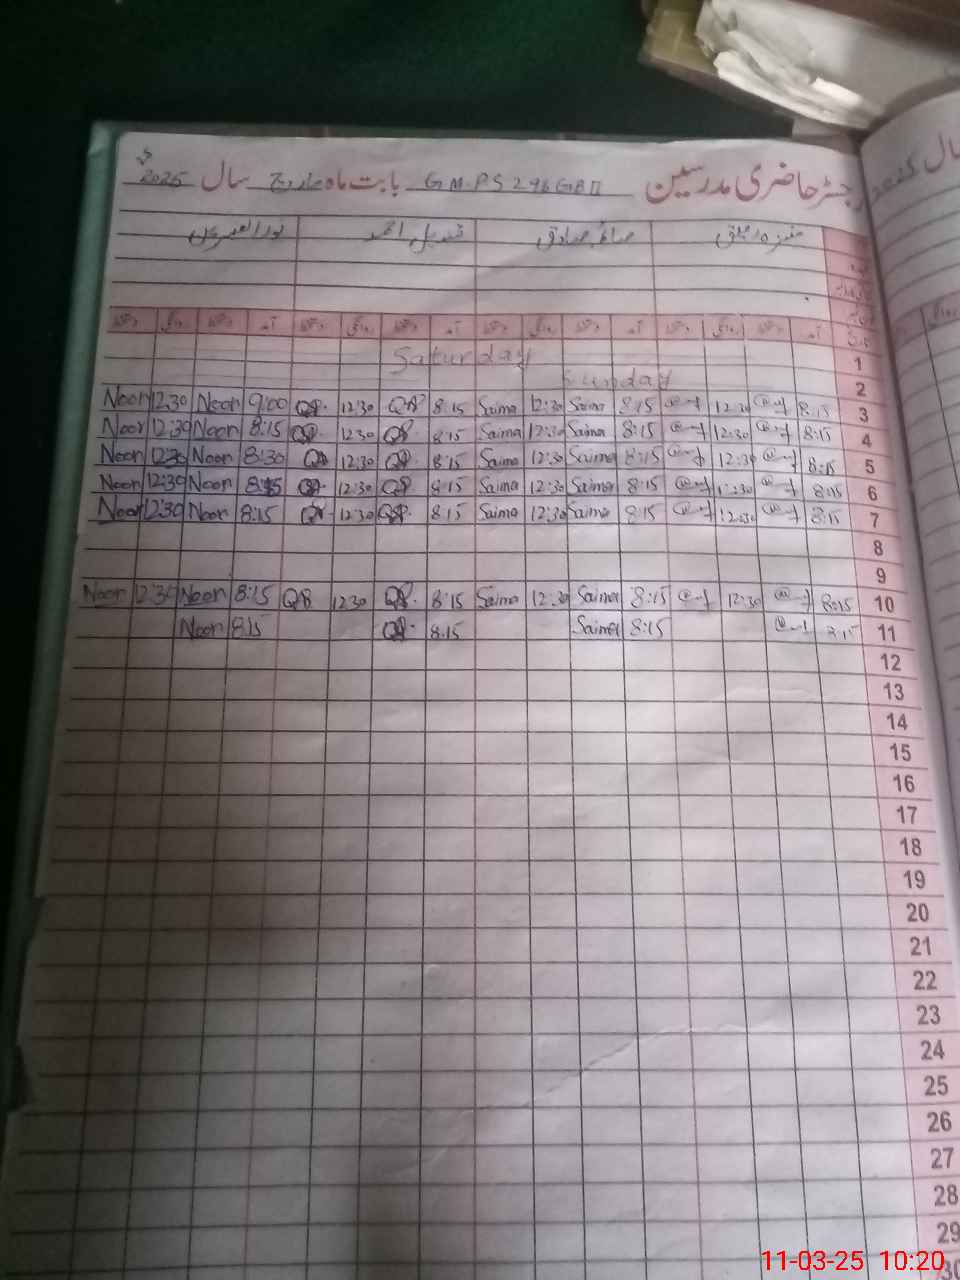 رجسٹر حاضری مدرسین G M.PS 296 GB II بابت ماہ مارچ سال 2025
صائمہ صادق قندیل احمد نور العین
آمد دستخط روانگی دستخط آمد دستخط روانگی دستخط آمد دستخط روانگی دستخط آمد دستخط روانگی دستخط
1 Saturday
2 Sunday
3 8:15 12:30 8:15 Saima 12:30 Saima 8:15 QA 12:30 QA 9:00 Noor 12:30 Noor
4 8:15 12:30 8:15 Saima 12:30 Saima 8:15 QA 12:30 QA 8:15 Noor 12:30 Noor
5 8:15 12:30 8:15 Saima 12:30 Saima 8:15 QA 12:30 QA 8:30 Noor 12:30 Noor
6 8:15 12:30 8:15 Saima 12:30 Saima 8:15 QA 12:30 QA Noor 12:30 Noor
7 8:15 12:30 8:15 Saima 12:30 Saima 8:15 QA 12:30 QA 8:15 Noor 12:30 Noor
8
9
10 8:15 12:30 8:15 Saima 12:30 Saima 8:15 QA 12:30 QA 8:15 Noor 12:30 Noor
11 8:15 Saima 8:15 QA 8:15 Noor
12
13
14
15
16
17
18
19
20
21
22
23
24
25
26
27
28
29
30
سال 2025
11-03-25 10:20